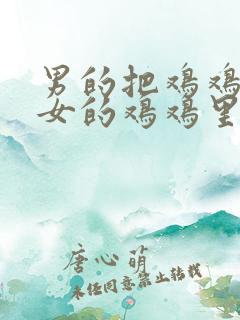 男的把鸡鸡
女的鸡鸡里
唐心萌
未经同意禁止转载